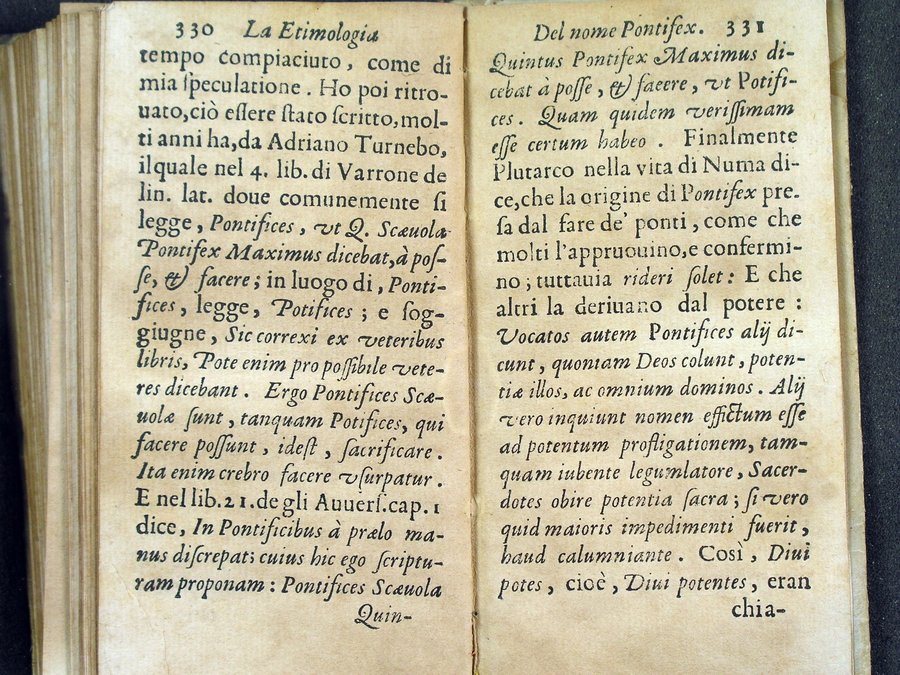 330 La Etimologia
tempo compiaciuto, come di
mia ſpeculatione. Ho poi ritro-
uato, ciò eſſere ſtato ſcritto, mol-
ti anni ha, da Adriano Turnebo,
il quale nel 4. lib. di Varrone de
lin. lat. doue comunemente ſi
legge, Pontifices, vt Q. Scæuola
Pontifex Maximus dicebat, à poſ-
ſe, & facere; in luogo di, Ponti-
fices, legge, Potifices; e ſog-
giugne, Sic correxi ex veteribus
libris, Pote enim pro poſſibile vete-
res dicebant. Ergo Pontifices Scæ-
uolæ ſunt, tanquam Potifices, qui
facere poſſunt, ideſt, ſacrificare.
Ita enim crebro facere vſurpatur.
E nel lib. 21. de gli Auuerſ. cap. 1
dice, In Pontificibus à prælo ma-
nus diſcrepat: cuius hic ego ſcriptu-
ram proponam: Pontifices Scæuola
Quin-
Del nome Pontifex. 331
Quintus Pontifex Maximus di-
cebat à poſſe, & facere, vt Potifi-
ces. Quam quidem veriſſimam
eſſe certum habeo. Finalmente
Plutarco nella vita di Numa di-
ce, che la origine di Pontifex pre-
ſa dal fare de' ponti, come che
molti l'appruouino, e confermi-
no; tuttauia rideri ſolet: E che
altri la deriuano dal potere:
Vocatos autem Pontifices alij di-
cunt, quoniam Deos colunt, poten-
tiæ illos, ac omnium dominos. Alij
vero inquiunt nomen effictum eſſe
ad potentum profligationem, tam-
quam iubente legumlatore, Sacer-
dotes obire potentia ſacra; ſi vero
quid maioris impedimenti fuerit,
haud calumniante. Così, Diui
potes, cioè, Diui potentes, eran
chia-